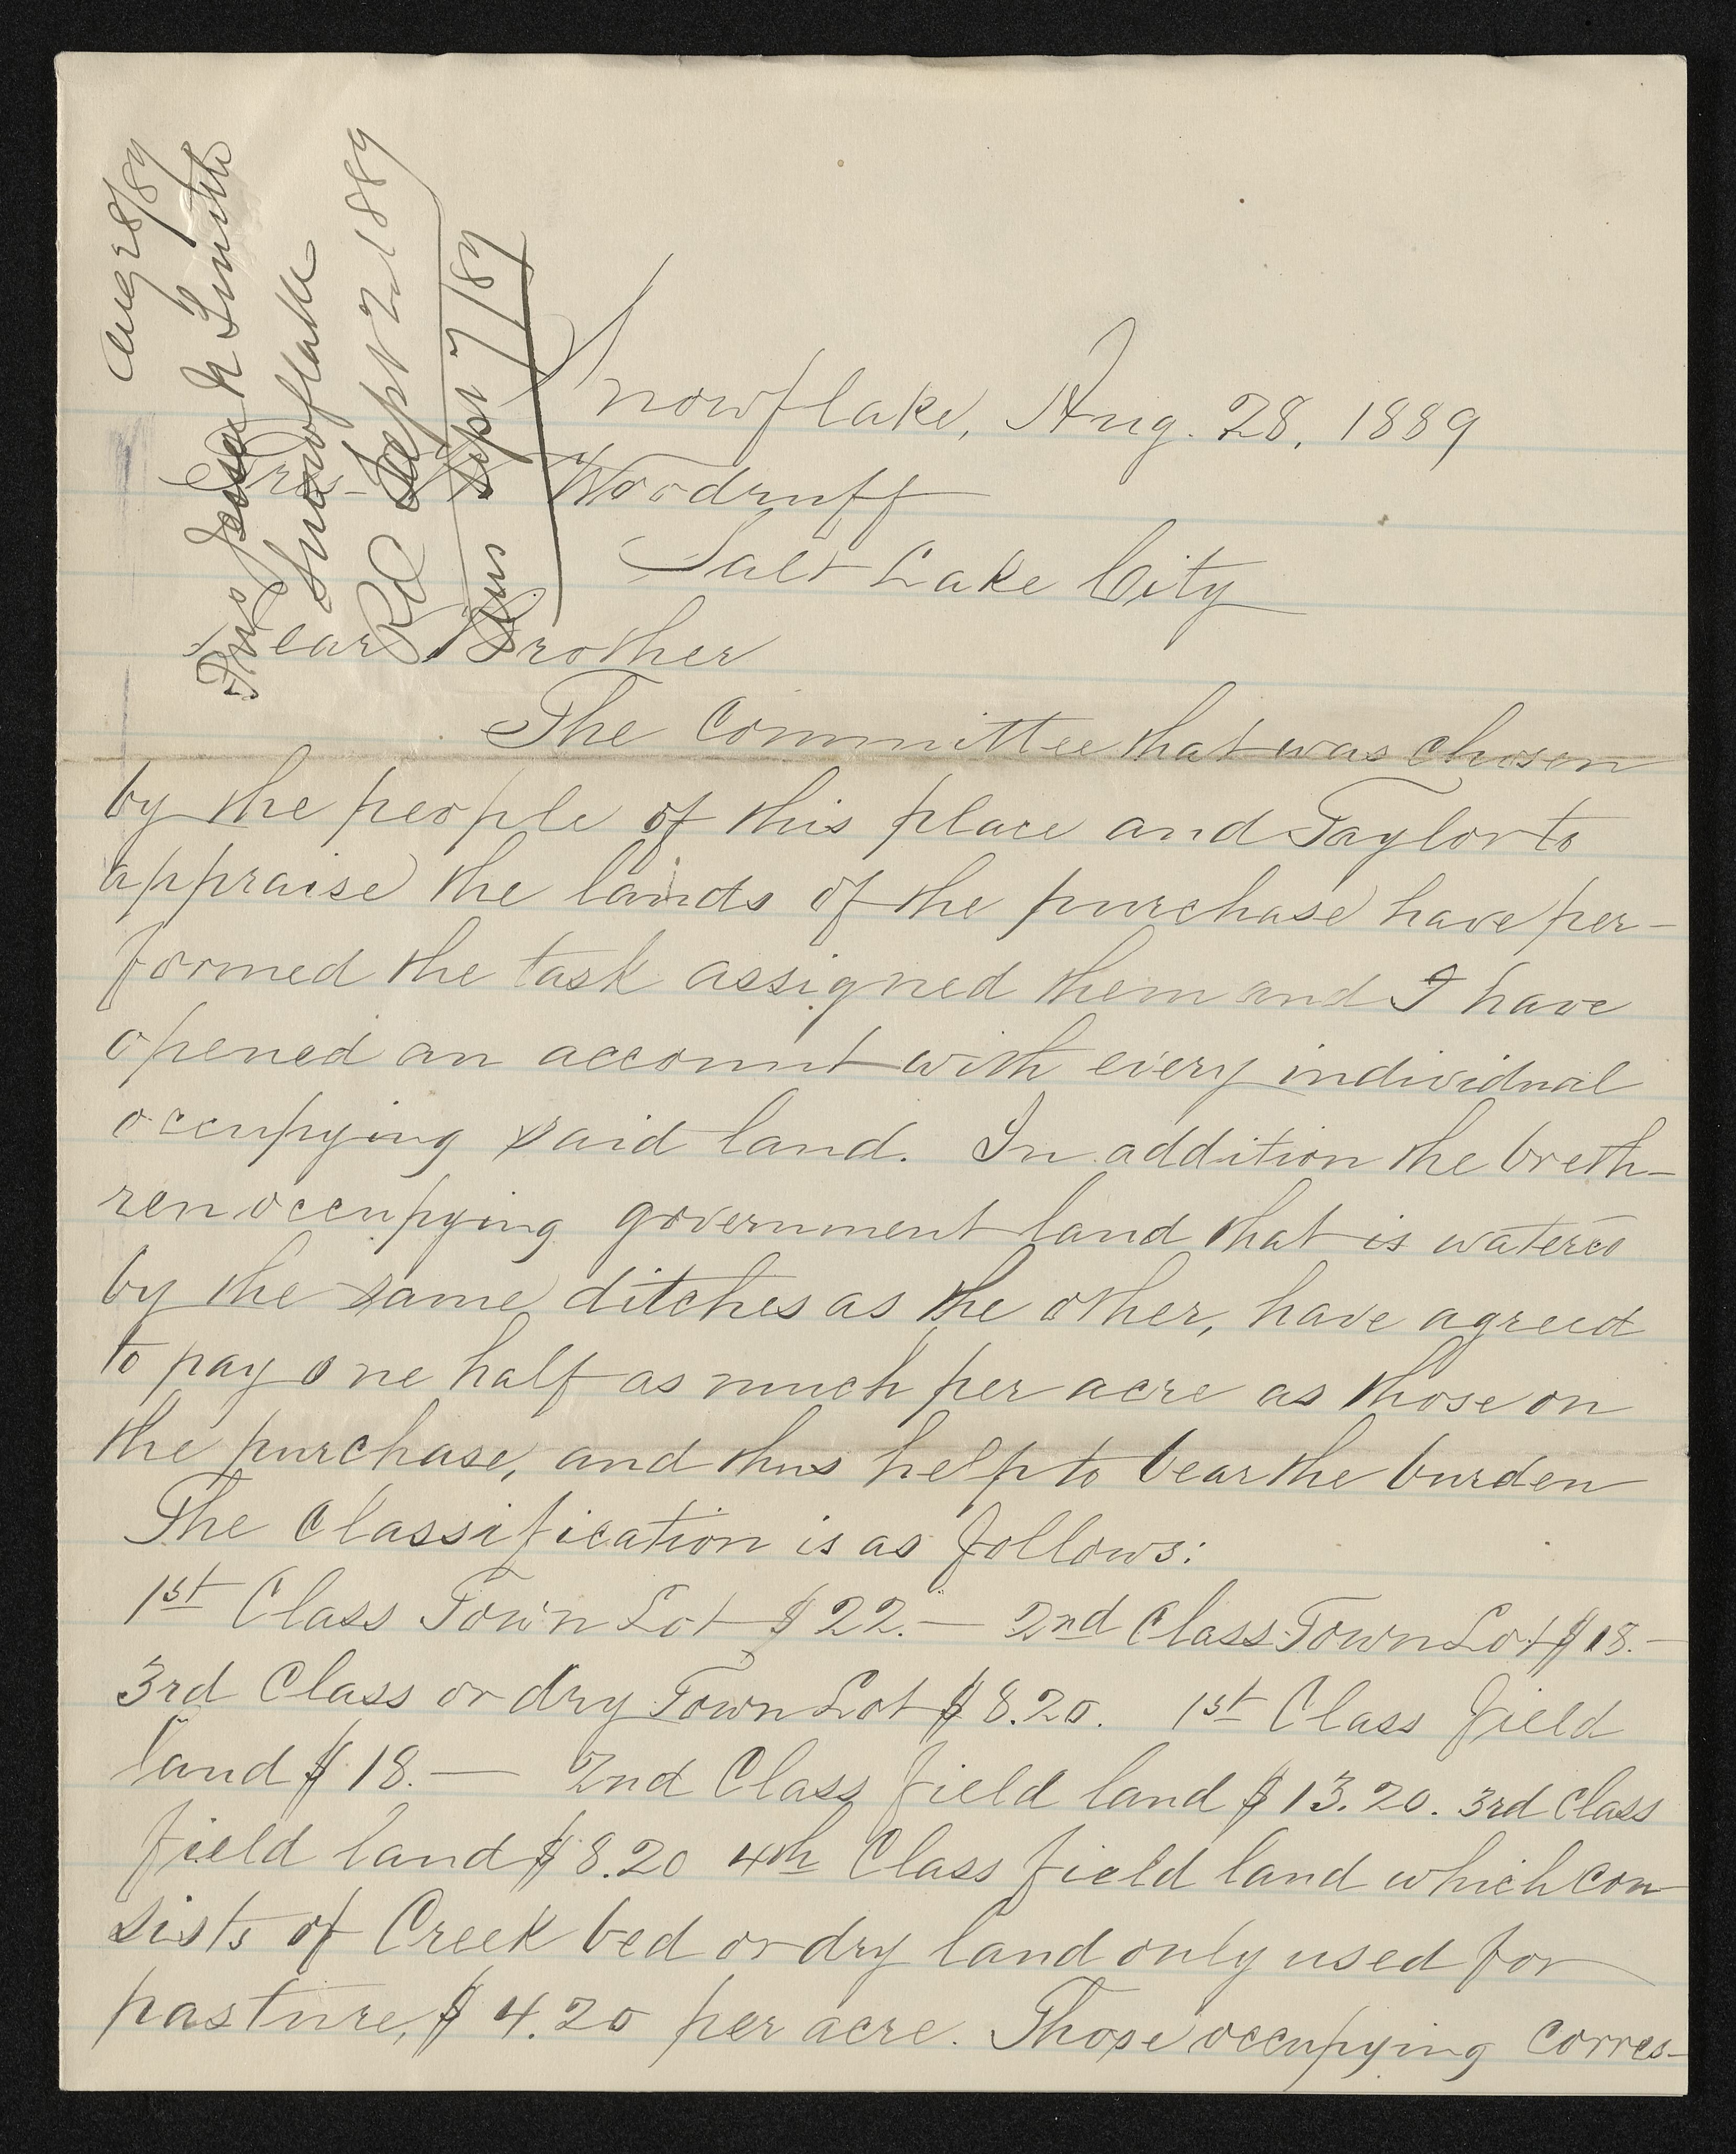 Aug 28/89
Pres Jesse N Smith
Snowflake
Rd Sept 2nd 1889
Ans Sept 7/89
Snowflake, Aug. 28, 1889
Pres. W. Woodruff
Salt Lake City
Dear Brother
The Committee that was chosen
by the people of this place and Taylor to
appraise the lands of the purchase have per-
formed the task assigned them and I have
opened an account with every individual
occupying said land. In addition the breth-
ren occupying government land that is watered
by the same ditches as the other, have agreed
to pay one half as much per acre as those on
the purchase, and thus help to bear the burden
The Classification is as follows:
1st Class Town Lot $22.— 2nd Class Town Lot $18.—
3rd Class or dry Town Lot $8.20. 1st Class field
land $18.— 2nd Class field land $13.20. 3rd Class
field land $8.20 4th Class field land which con-
sists of Creek bed or dry land only used for
pasture, $4.20 per acre. Those occupying corres-